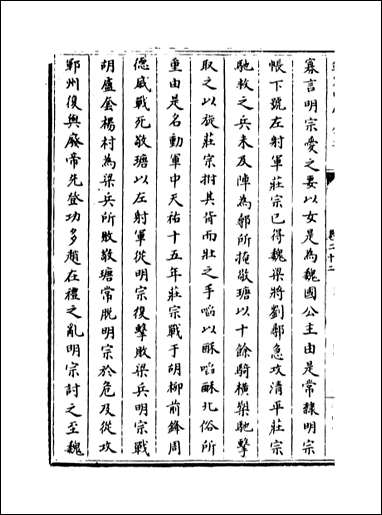 寡言明宗愛之妻以女是為魏國公主由是常隸明宗
帳下號左射軍莊宗已得魏梁將劉鄩急攻清平莊宗
馳救之兵未及陣為鄩所掩敬瑭以十餘騎橫槊馳擊
取之以旋莊宗拊其背而壯之手啗以酥啗酥北俗所
重由是名動軍中天祐十五年莊宗戰于胡柳前鋒周
德威戰死敬瑭以左射軍從明宗復擊敗梁兵明宗戰
胡盧套楊村為梁兵所敗敬瑭常脫明宗於危及從攻
鄆州復與廢帝先登功多趙在禮之亂明宗討之至魏
卷二十二